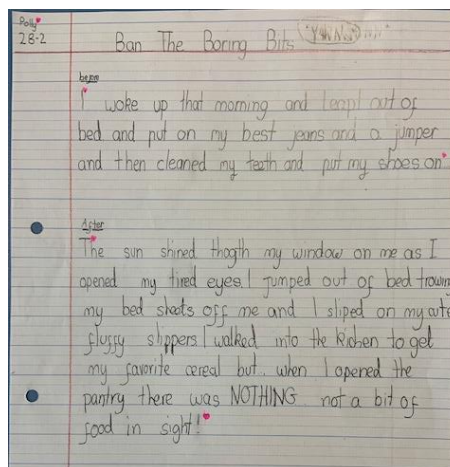 Polly
28-2
Ban The Boring Bits "YAWN..."
before
I woke up that morning and leapt out of
bed and put on my best jeans and a jumper
and then cleaned my teeth and put my shoes on
After
The sun shined thogth my window on me as I
opened my tired eyes. I jumped out of bed trowing
my bed sheets off me and I sliped on my cute
fluffy slippers. I walked into the kichen to get
my favorite cereal but.. when I opened the
pantry there was NOTHING not a bit of
food in sight!